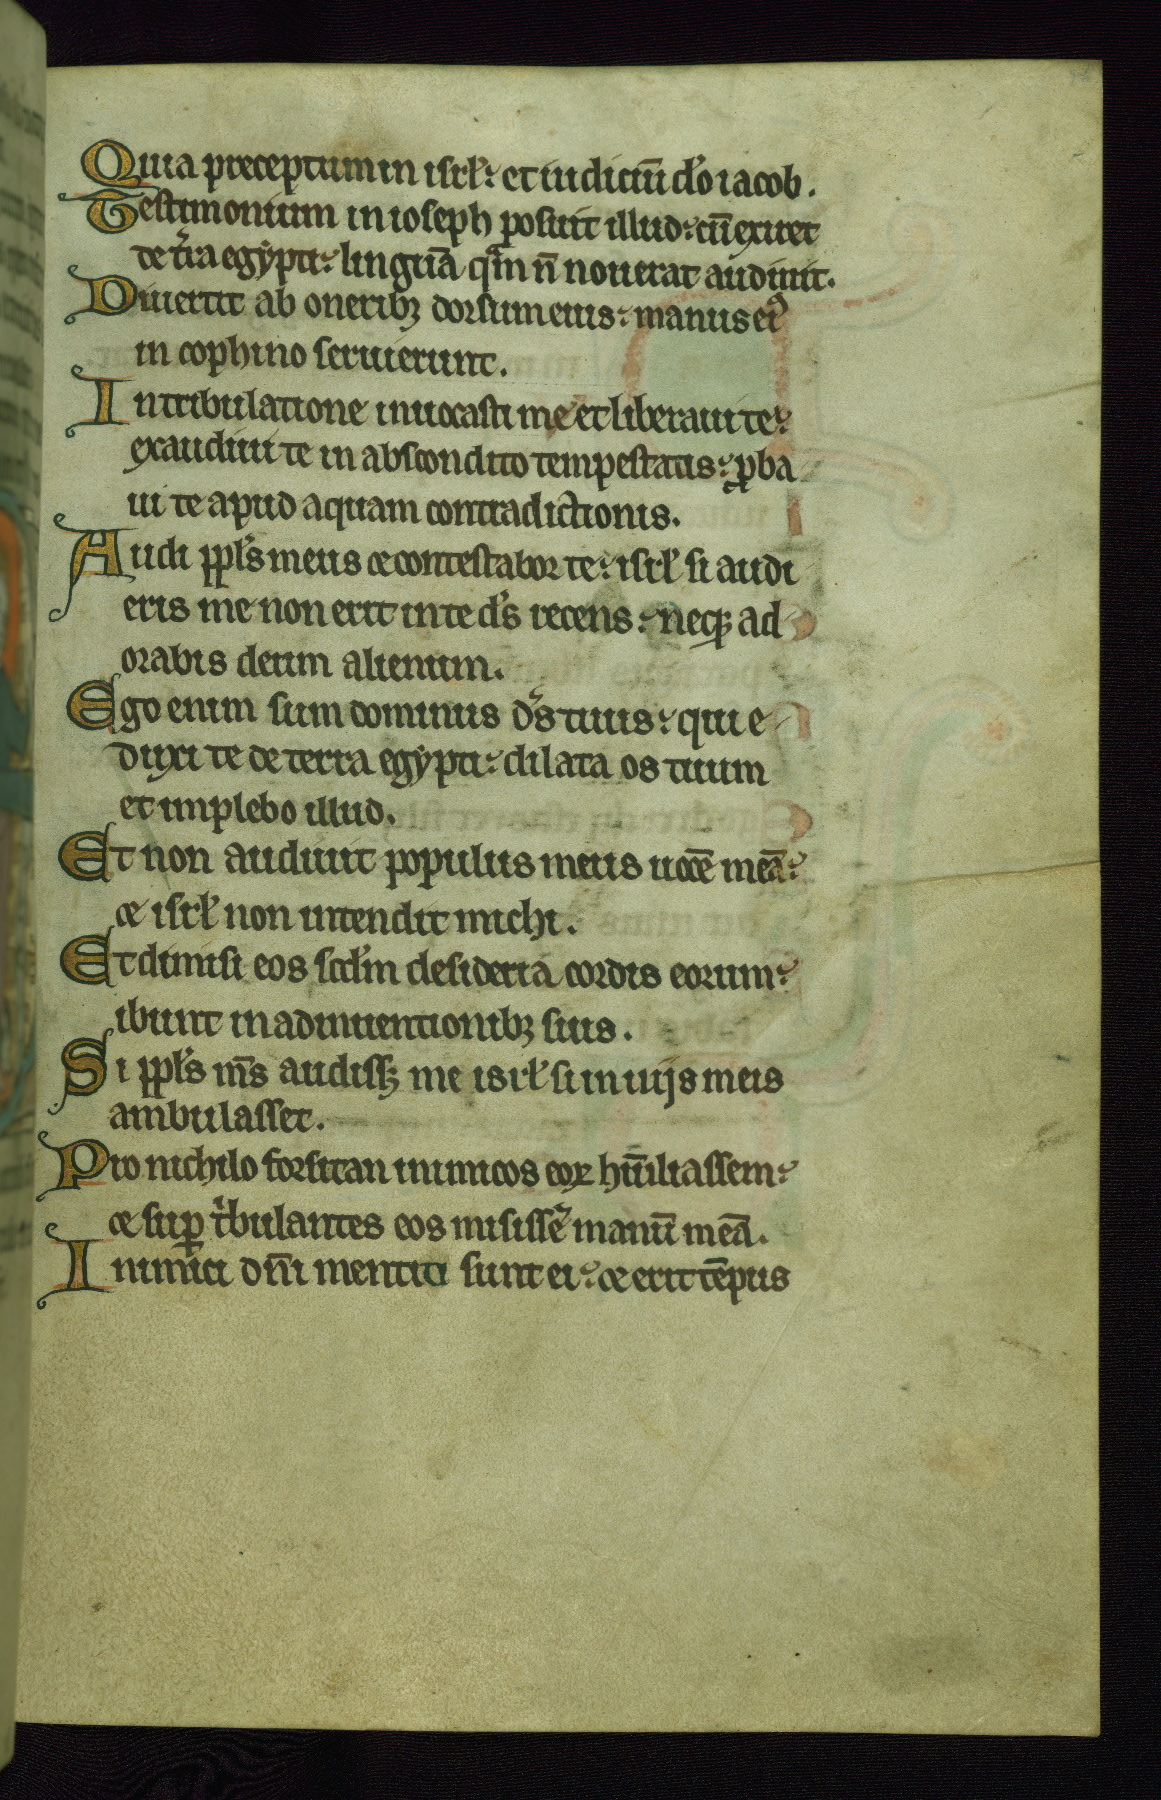 Quia preceptum in isrł: et iudiciū dō iacob.
Testimonium in ioseph posuit illud: cū exiret
de tra egypti: linguā qm n̄ nouerat audiuit.
Diuertit ab oneribꝫ dorsum eius: manus eiꝰ
in cophino seruierunt.
In tribulatione inuocasti me et liberaui te:
exaudiui te in abscondito tempestatis: ꝓba
ui te apud aquam contradictionis.
Audi ppłs meus ⁊ contestabor te: isrł si audi
eris me non erit in te ds recens: neqꝫ ad
orabis deum alienum.
Ego enim sum dominus ds tuus: qui e
duxi te de terra egypti: dilata os tuum
et implebo illud.
Et non audiuit populus meus uocē meā:
⁊ isrł non intendit michi.
Et dimisi eos scdm desideria cordis eorum:
ibunt in adinuentionibꝫ suis.
Si ppłs ms audissꝫ me isrł si in uijs meis
ambulasset.
Pro nichilo forsitan inimicos eoꝝ hūiliassem:
⁊ suꝑ tbulantes eos misissē manū meā.
Inimici dn̄i mentiti sunt ei: ⁊ erit tēpus